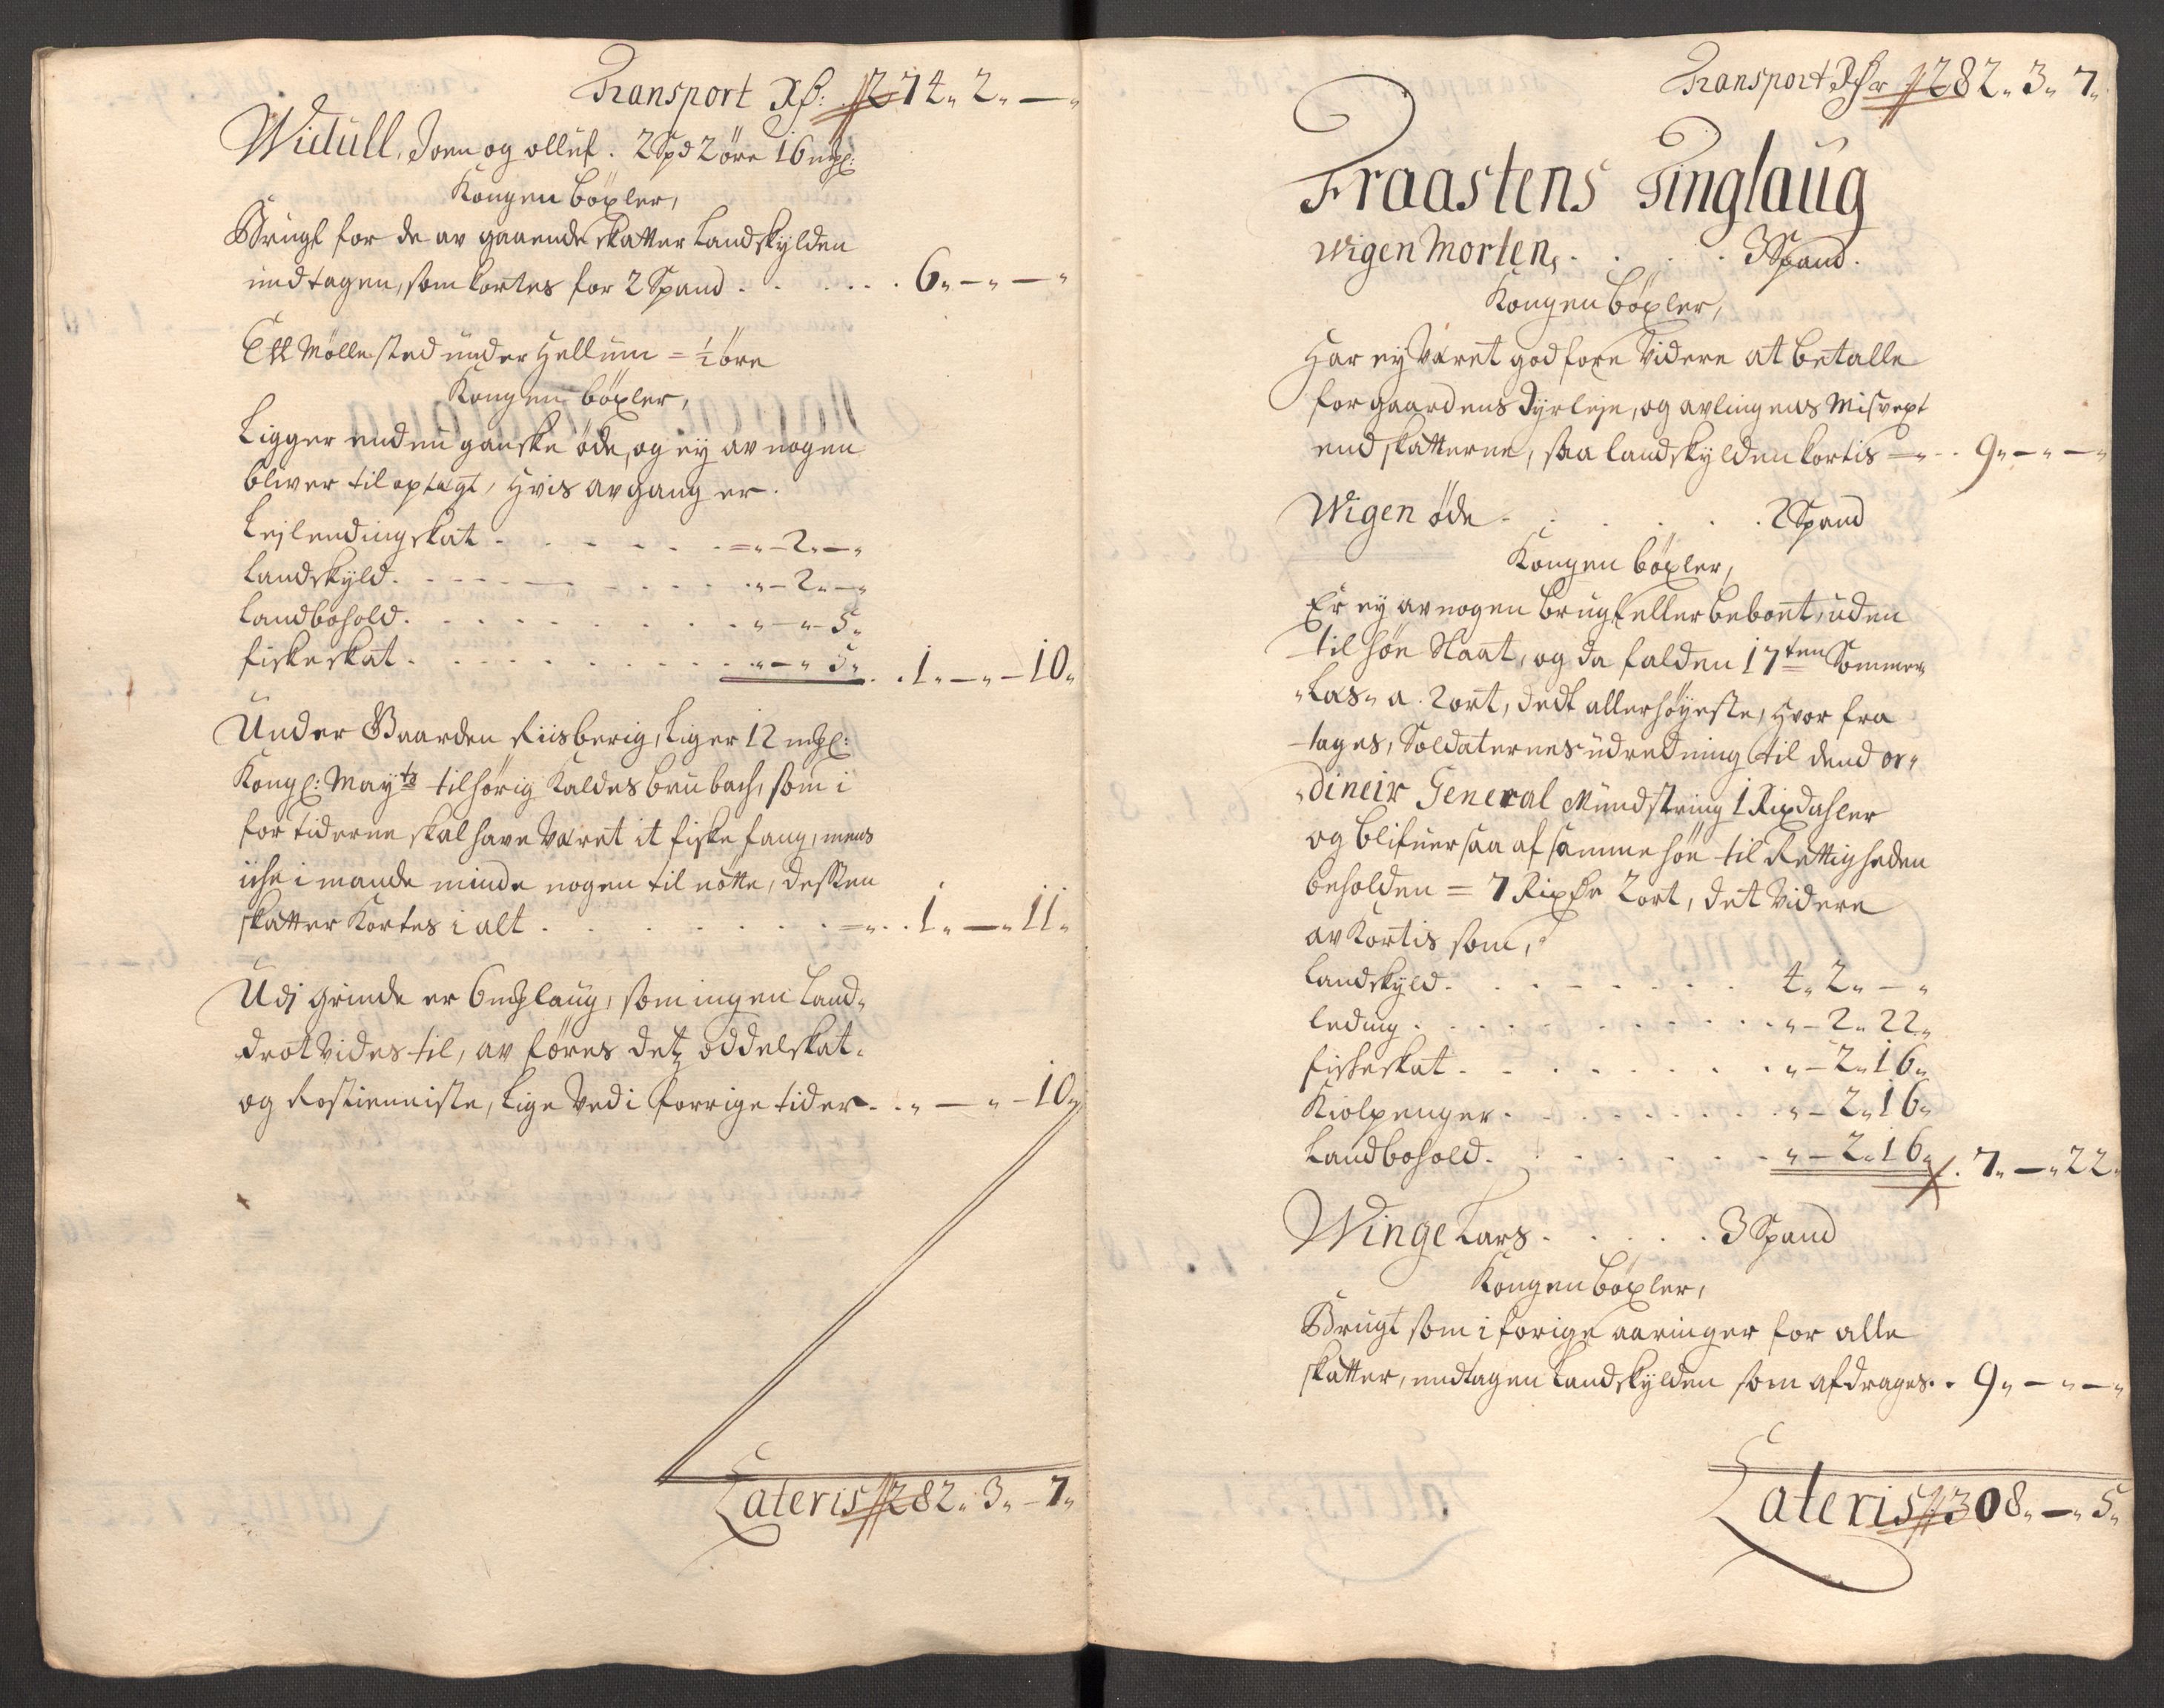 Transport Rß: 274" 2" — "
Widull, Joen og olluf. 2 Spd 2 öre 16 mʒl:
Kongen böxler,
Brugt for de av gaaende skatter Landskylden
undtagen, som kortes for 2 Spand . . . . . 6" — " — "
Ett Möllested under Hellum = ½ öre
Kongen böxler,
Ligger endnu ganske öde, og ey av nogen
bliver til optagt, Hvis avgang er.
Leylendingskat . . . . . . = " — 2. — "
Landskyld. . . . . . . . . " — 2 " — "
Landbohold. . . . . . . . . " — " — 5 "
fiskeskat . . . . . . . . . " — " 5 " . . 1 " — " — 10 "
Under Gaarden Riisberig, Liger 12 mʒl:
Kongl: Mayts tilhörig Kaldes brubach, som i
for tiderne skal have været it fiske fang, mens
iche i mande minde nogen til nötte, dessen
skatter Kortes i alt . . . . . . . = " . . 1 " — " 11 "
Udj Grinde er 6 mʒlaug, som ingen Land-
drot vides til, av föres detz oddelskat-
og Rostienniste, lige ved i forrige tider . . " — " — 10 "
Lateris 282 " 3 " — 7 "
Transport Rdr 282 " 3 " 7 "
Fraastens Tinglaug
Wigen Morten, . . . . 3 Spand.
Kongen böxler,
Har ey været god fore videre at betalle
for gaardens dyrleje, og avlingens Misvext
end skatterne, saa landskylden kortis — " . . 9 " — " — "
Wigen öde . . . . . . 2 Spand
Kongen böxler,
Er ey av nogen brugt eller beboet, uden
til höe Slaat, og da falden 17ten Sommer
"Læs" a. 2 ort, dedt allerhöyeste, Hvor fra
tages, Soldaternes udredning til dend or"
"dineir General Mundstring 1 Rixdahler
og blifuer saa af samme höe til Rettigheden
beholden = 7 Rixdr 2 ort, det videre
av Kortis som,
Landskyld. . . . . . . . 4 " 2 " — "
leding . . . . . . . . . " — 2 " 22 "
fiskeskat . . . . . . . . " — 2 " 16 "
Kiolpenger . . . . . . . " — 2 " 16 "
Landbohold. . . . . . . " — 2 " 16 " . 7 " — " 22 "
Winge Lars . . . . . 3 Spand
Kongen böxler,
Brugt som i forige aaringer for alle
skatter, undtagen Landskylden som afdrages . . 9 " — " — "
Lateris 308 " — " 5 "